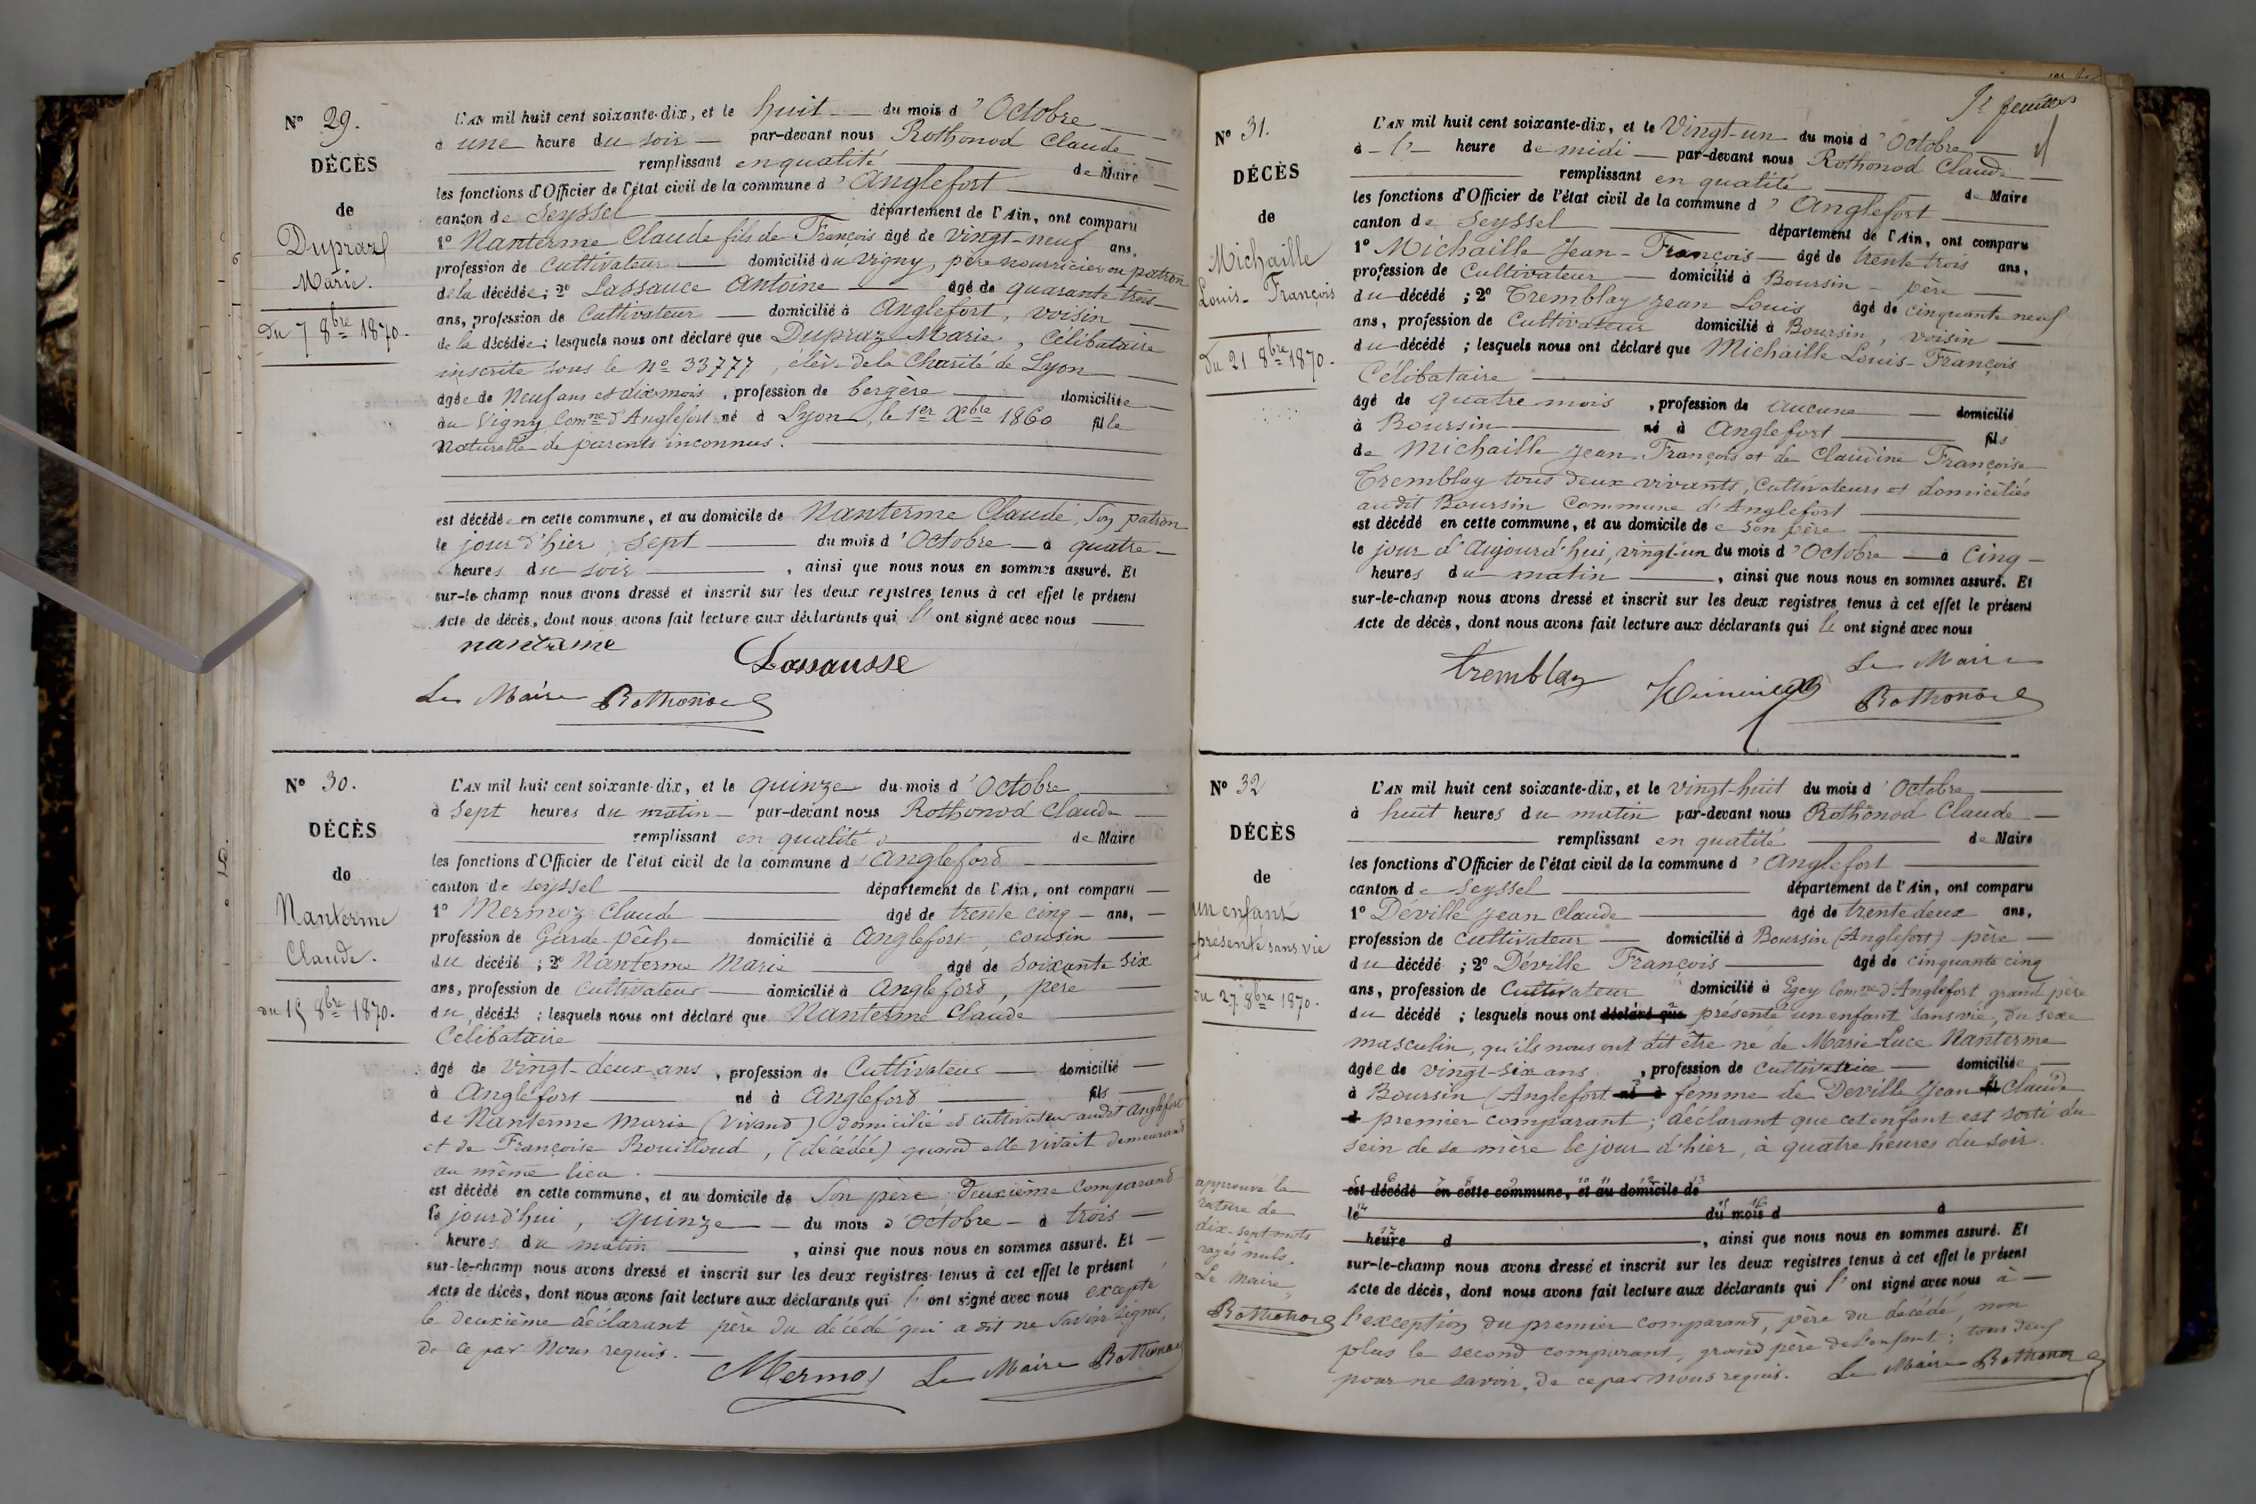 N° 29.
DÉCÈS
de
Dupraz
Marie.
Du 7 8bre 1870.
L'AN mil huit cent soixante-dix, et le huit du mois d'Octobre
à une heure du soir par-devant nous Rothonod Claude
remplissant en qualité de Maire
les fonctions d'Officier de l'état civil de la commune d'Anglefort
canton de Seyssel département de l'Ain, ont comparu
1° Nanterme Claude fils de François âgé de vingt-neuf ans,
profession de cultivateur domicilié à Vigny, père nourricier ou patron
de la décédée; 2° Lassauce Antoine âgé de quarante trois
ans, profession de Cultivateur domicilié à Anglefort, voisin
de la décédée; lesquels nous ont déclaré que Dupraz Marie, Célibataire
inscrite sous le N° 33777, élève de la Charité de Lyon
âgée de Neuf ans et dix mois, profession de bergère domiciliée
au Vigny Comne d'Anglefort né à Lyon, le 1er Xbre 1860 fille
Naturelle de parents inconnus.
est décédée en cette commune, et au domicile de Nanterme Claude, son patron
le jour d'hier, sept du mois d'Octobre à quatre
heures du soir, ainsi que nous nous en sommes assuré. Et
sur-le-champ nous avons dressé et inscrit sur les deux registres tenus à cet effet le présent
Acte de décès, dont nous avons fait lecture aux déclarants qui l'ont signé avec nous
nanterme Lassausse
Le Maire Rothonod
N° 30.
DÉCÈS
de
Nanterme
Claude.
du 15 8bre 1870.
L'AN mil huit cent soixante-dix, et le quinze du mois d'Octobre
à sept heures du matin par-devant nous Rothonod Claude
remplissant en qualité de Maire
les fonctions d'Officier de l'état civil de la commune d'Anglefort
canton de Seyssel département de l'Ain, ont comparu
1° Mermoz Claude âgé de trente cinq ans,
profession de Garde-pêche domicilié à Anglefort, cousin
du décédé; 2° Nanterme Marie âgé de soixante six
ans, profession de Cultivateur domicilié à Anglefort, père
du décédé; lesquels nous ont déclaré que Nanterme Claude
Célibataire
âgé de vingt-deux ans, profession de Cultivateur domicilié
à Anglefort né à Anglefort fils
de Nanterme Marie (vivant) domicilié et cultivateur audit Anglefort
et de Françoise Bouilloud, (décédée) quand elle vivait demeurant
au même lieu.
est décédé en cette commune, et au domicile de son père deuxième comparant
le jourd'hui, quinze du mois d'Octobre à trois
heures du matin, ainsi que nous nous en sommes assuré. Et
sur-le-champ nous avons dressé et inscrit sur les deux registres tenus à cet effet le présent
Acte de décès, dont nous avons fait lecture aux déclarants qui l'ont signé avec nous excepté
le deuxième déclarant père du décédé qui a dit ne savoir signer,
de ce par nous requis.
Mermoz Le Maire Rothonod
N° 31.
DÉCÈS
de
Michaille
Louis-François
du 21 8bre 1870.
L'AN mil huit cent soixante-dix, et le Vingt-un du mois d'Octobre
à heure de midi par-devant nous Rothonod Claude
remplissant en qualité de Maire
les fonctions d'Officier de l'état civil de la commune d'Anglefort
canton de Seyssel département de l'Ain, ont comparu
1° Michaille Jean-François âgé de trente trois ans,
profession de Cultivateur domicilié à Boursin père
du décédé; 2° Tremblay Jean Louis âgé de cinquante neuf
ans, profession de Cultivateur domicilié à Boursin, voisin
du décédé; lesquels nous ont déclaré que Michaille Louis-François
Célibataire
âgé de quatre mois, profession de aucune domicilié
à Boursin né à Anglefort fils
de Michaille Jean François et de Claudine Françoise
Tremblay tous deux vivants, cultivateurs et domiciliés
audit Boursin commune d'Anglefort
est décédé en cette commune, et au domicile de son père
le jour d'aujourd'hui, vingt-un du mois d'Octobre à cinq
heures du matin, ainsi que nous nous en sommes assuré. Et
sur-le-champ nous avons dressé et inscrit sur les deux registres tenus à cet effet le présent
Acte de décès, dont nous avons fait lecture aux déclarants qui l' ont signé avec nous
Tremblay Le Maire
Rothonod
N° 32
DÉCÈS
de
un enfant
présenté sans vie
du 27 8bre 1870.
L'AN mil huit cent soixante-dix, et le vingt-huit du mois d'Octobre
à huit heures du matin par-devant nous Rothonod Claude
remplissant en qualité de Maire
les fonctions d'Officier de l'état civil de la commune d'Anglefort
canton de Seyssel département de l'Ain, ont comparu
1° Déville Jean Claude âgé de trente deux ans,
profession de cultivateur domicilié à Boursin (Anglefort) père
du décédé; 2° Déville François âgé de cinquante cinq
ans, profession de Cultivateur domicilié à Egey Comne d'Anglefort grand père
du décédé; lesquels nous ont déclaré que présenté un enfant sans vie, du sexe
masculin, qu'ils nous ont dit être né de Marie-Luce Nanterme
âgée de vingt-six ans, profession de cultivatrice domiciliée
à Boursin (Anglefort né à femme de Deville Jean fil Claude
d premier comparant; déclarant que cet enfant est sorti du
sein de sa mère le jour d'hier, à quatre heures du soir.
est décédé en cette commune, et au domicile de
le du mois d à
heure d, ainsi que nous nous en sommes assuré. Et
sur-le-champ nous avons dressé et inscrit sur les deux registres tenus à cet effet le présent
Acte de décès, dont nous avons fait lecture aux déclarants qui l'ont signé avec nous à
l'exception du premier comparant, père du décédé, non
plus le second comparant, grand père de l'enfant; tous deux
pour ne savoir, de ce par nous requis. Le Maire Rothonod
approuvé la
rature de
dix-sept mots
rayés nuls.
Le Maire,
Rothonod